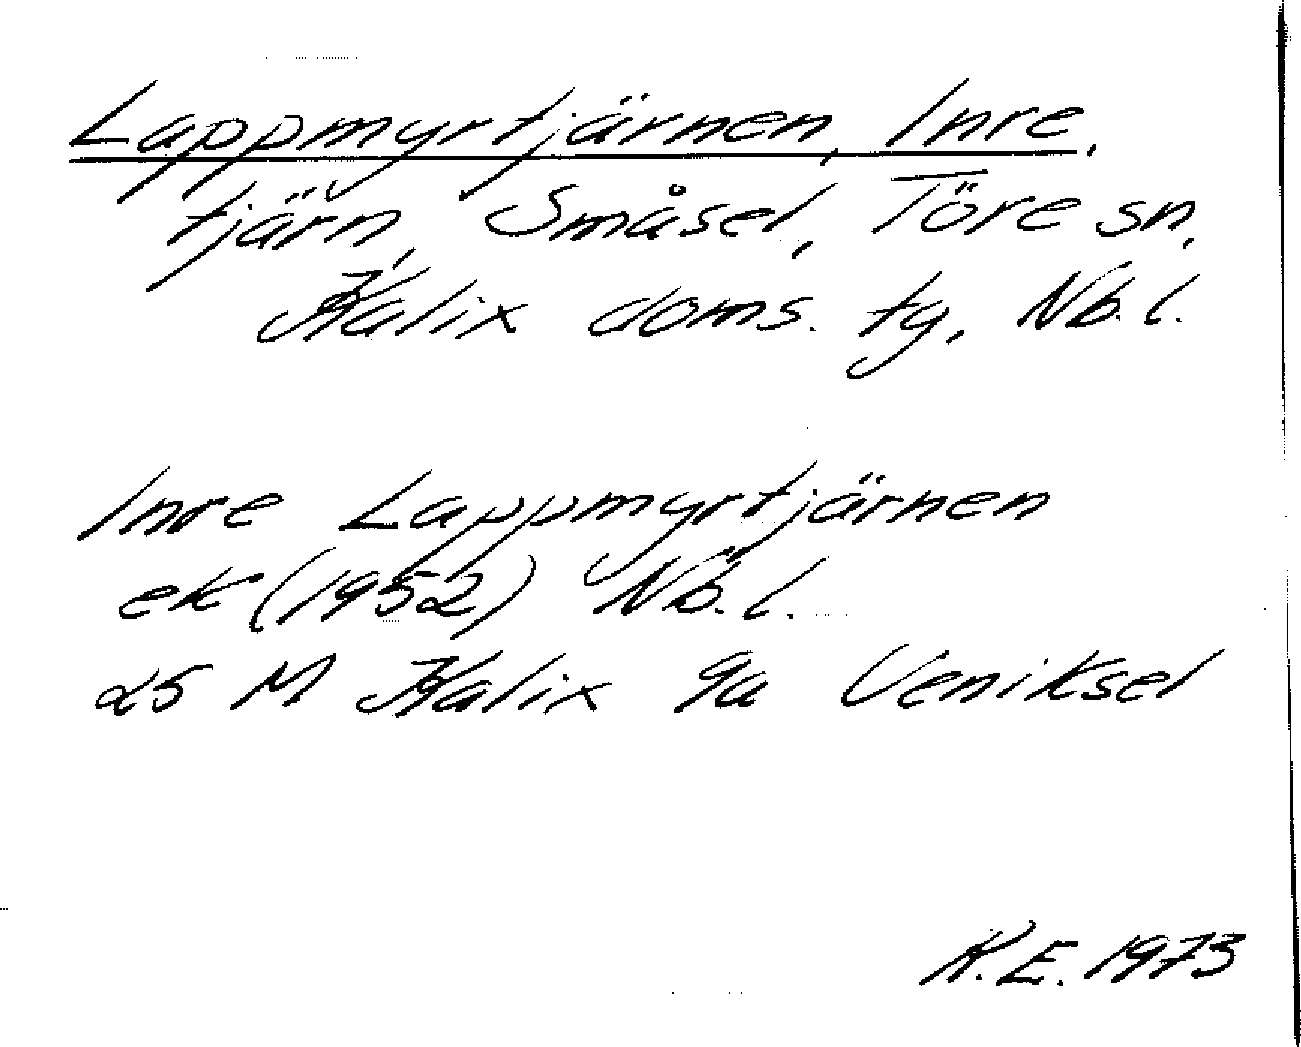 Lappmyrtjärnen, Inre.
tjärn, Småsel, Töre sn,
Kalix doms. tg, Nb. l.
Inre Lappmyrtjärnen
ek (1952) Nb. l.
25 M Kalix 9a Veniksel
K.E. 1973